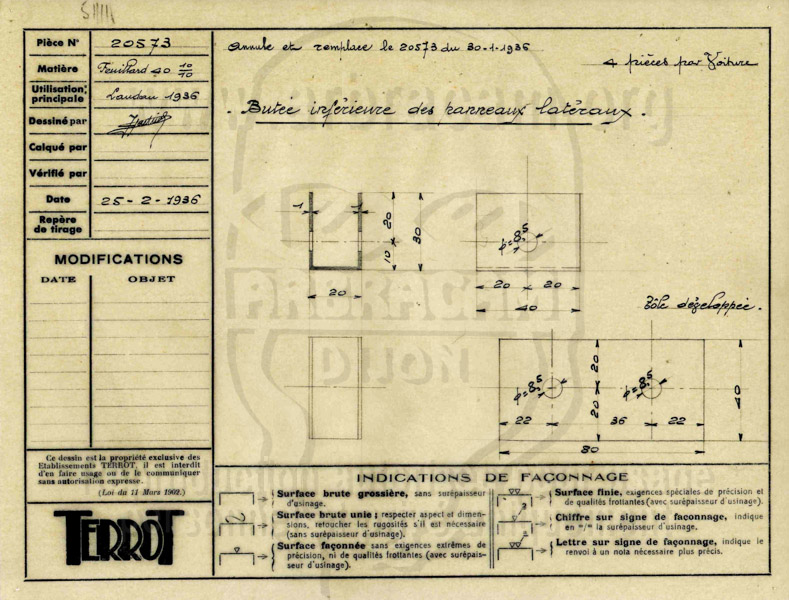 Pièce N° 20573
Matière Feuillard 40 10/10
Utilisation principale Landau 1936
Dessiné par
Calqué par
Vérifié par
Date 25-2-1936
Repère de tirage
MODIFICATIONS
DATE OBJET
Ce dessin est la propriété exclusive des
Etablissements TERROT, il est interdit
d'en faire usage ou de le communiquer
sans autorisation expresse.
(Loi du 11 Mars 1902.)
TERROT
Annule et remplace le 20573 du 30-1-1936
4 pièces par Voiture
Butée inférieure des panneaux latéraux.
1 1 20 10 30
20
φ=8,5
20 20
40
Tôle développée.
φ=8,5 φ=8,5
20 20 40
22 36 22
80
INDICATIONS DE FAÇONNAGE
Surface brute grossière, sans surépaisseur
d'usinage.
Surface brute unie; respecter aspect et dimen-
sions, retoucher les rugosités s'il est nécessaire
(sans surépaisseur d'usinage).
Surface façonnée sans exigences extrêmes de
précision, ni de qualités frottantes (avec surépais-
seur d'usinage).
Surface finie, exigences spéciales de précision et
de qualités frottantes (avec surépaisseur d'usinage).
Chiffre sur signe de façonnage, indique
en "/" la surépaisseur d'usinage.
Lettre sur signe de façonnage, indique le
renvoi à un nota nécessaire plus précis.
ABRACAM
DIJON